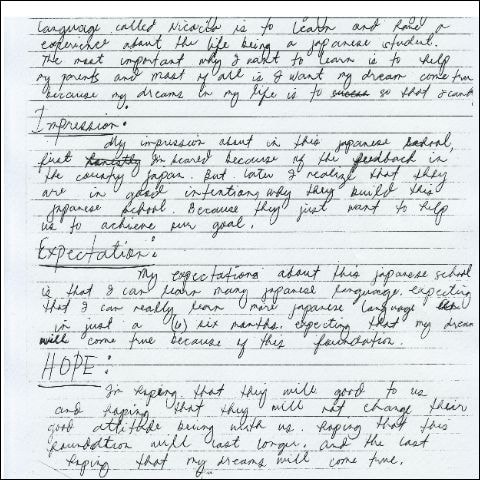 language called Nicoctis is to learn and have a
experience about the life being a japanese student.
The most important why I want to learn is to help
my parents and most of all is I want my dream come true
because my dreams in my life is to so that I can't
Impression:
My impression about in this japanese school,
first I'm scared because of the feedback in
the country japan. But later I realize that they
are in good intention, why they build this
japanese school. Because they just want to help
us to achieve our goal.
Expectation:
My expectations about this japanese school
is that I can learn many japanese language. expecting
that I can really learn more japanese language
in just a (6) six months. expecting that my dream
will come true because of this foundation.
HOPE:
I'm hoping that they will good to us
and hoping that they will not change their
good attitude being with us. hoping that this
foundation will last longer. and the last
hoping that my dreams will come true.